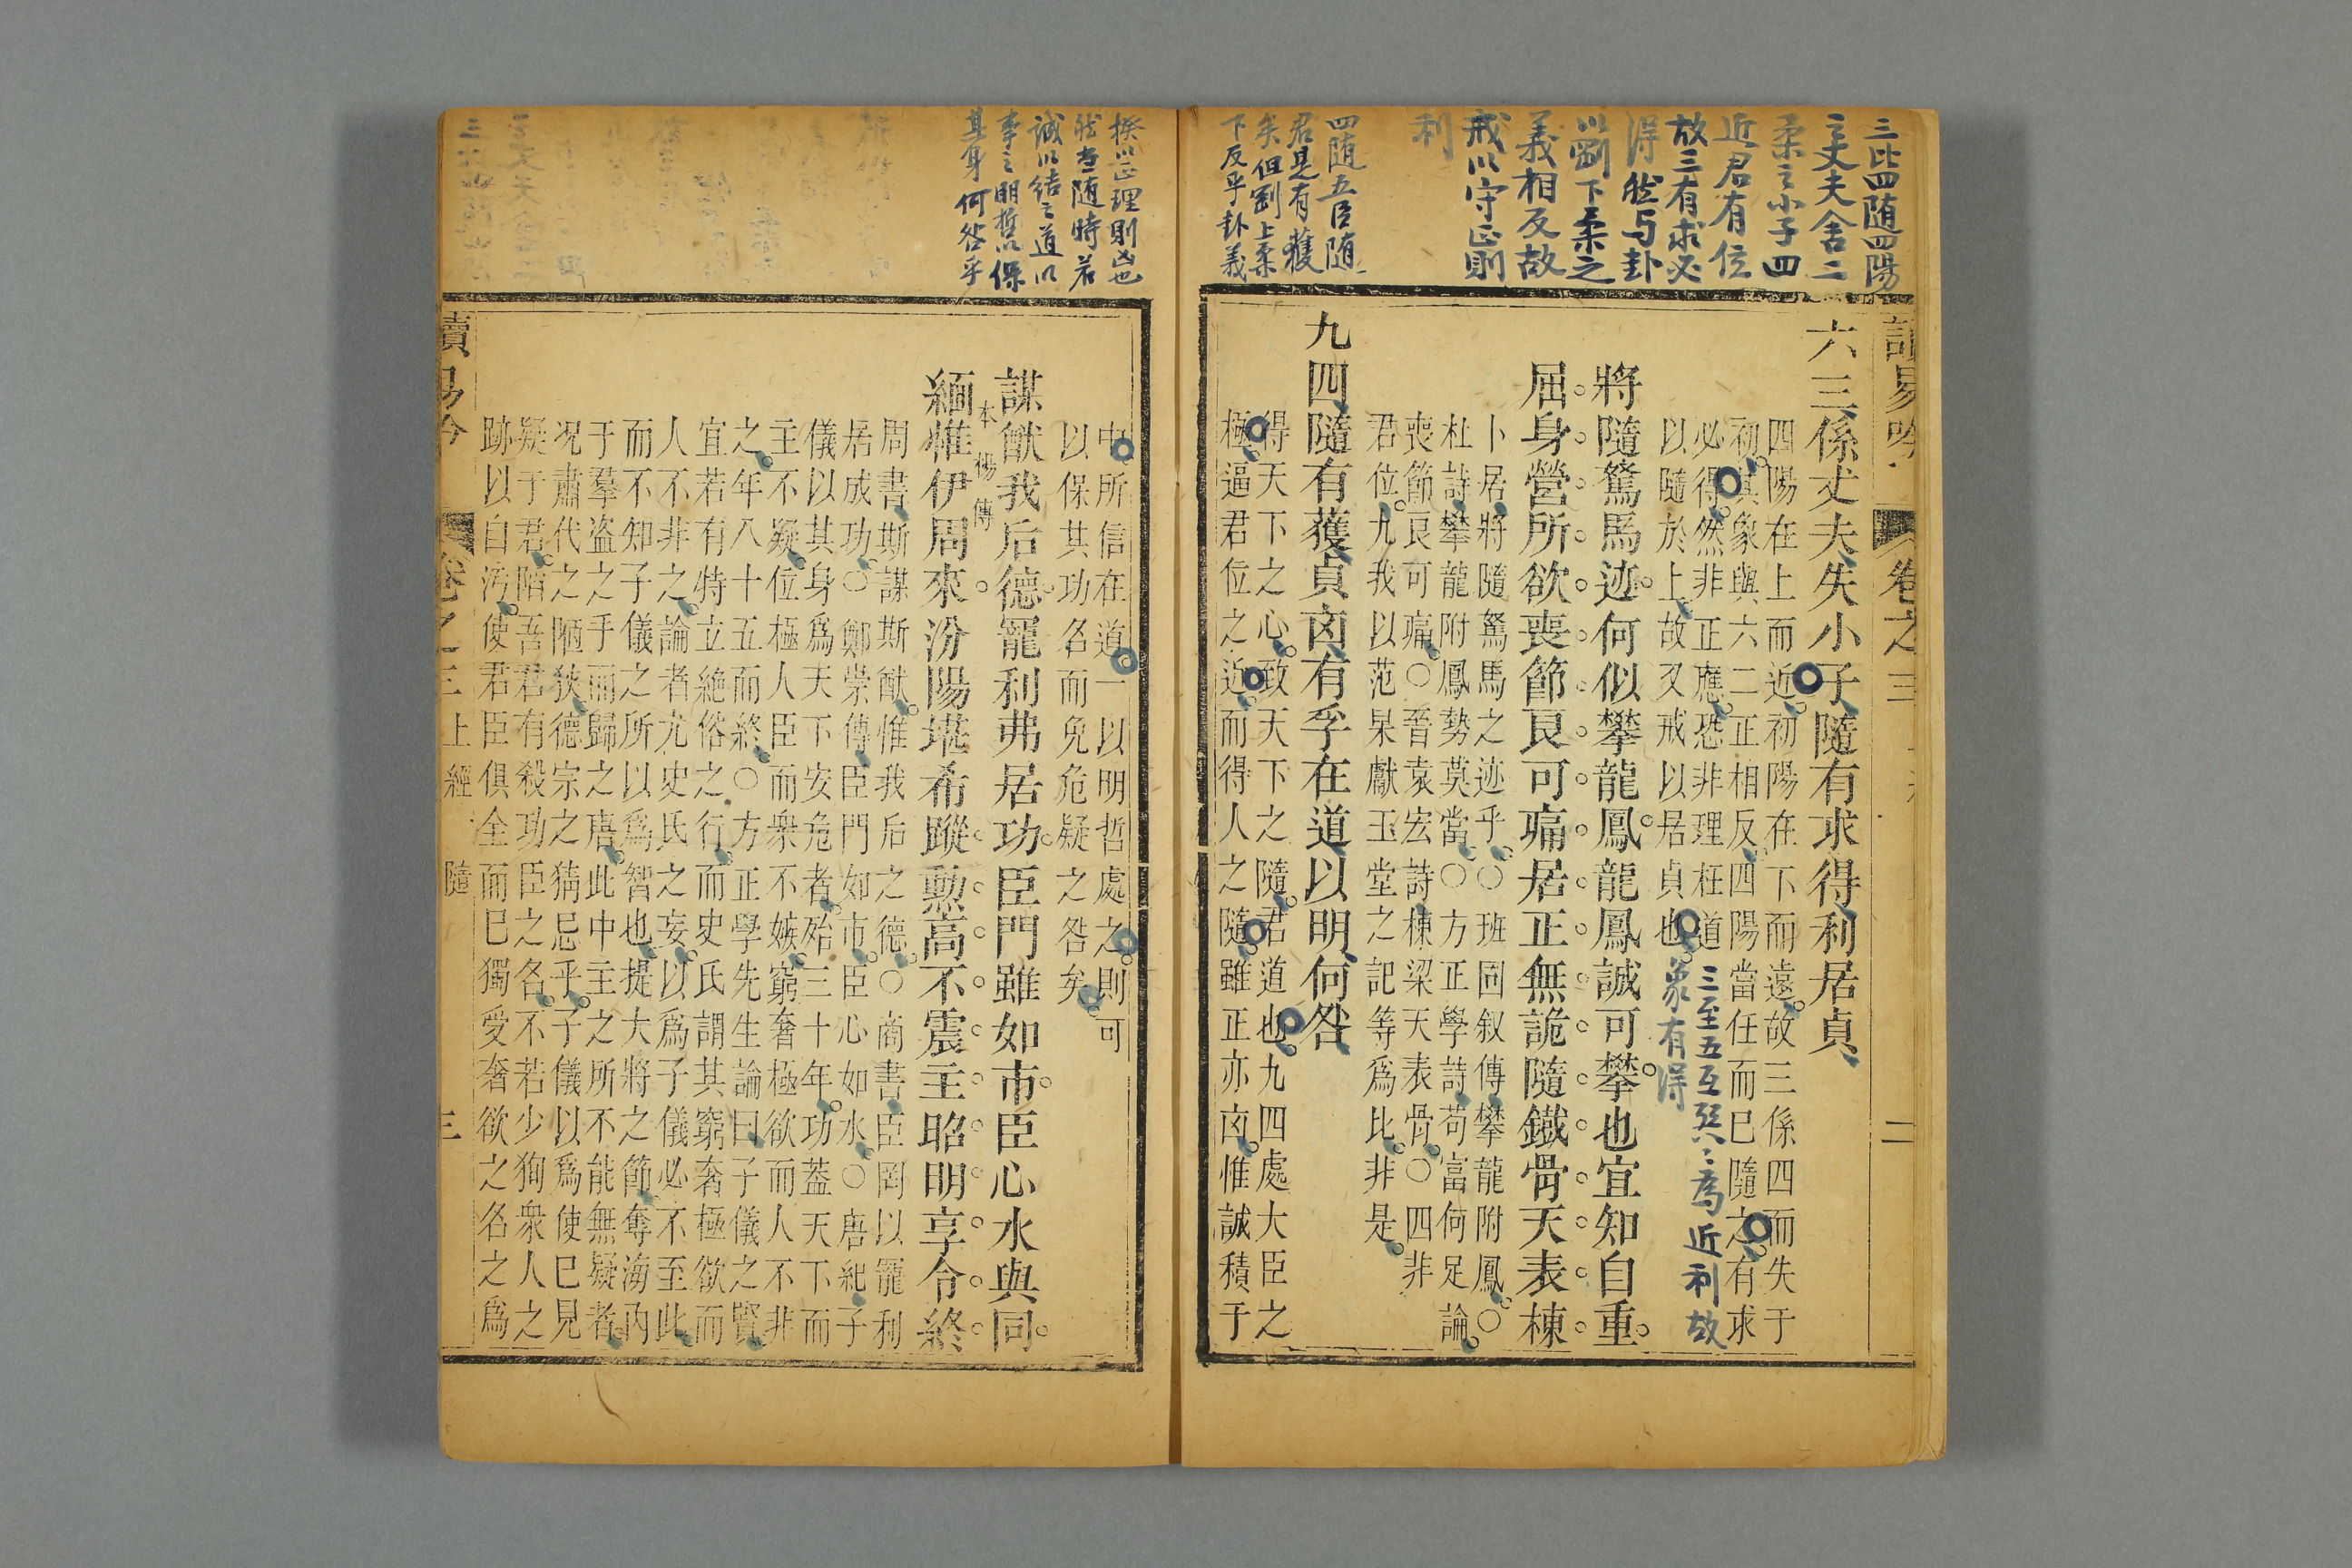 三比四随四陽
之丈夫舍二
柔之小子四
近君有位
故三有求必
得然与卦
以劉下柔之
義相反故
戒以守正則
利
四随五臣随
君是有獲
矣但剛上柔
下反乎卦義
讀易吟 卷之三 二
六三係丈夫失小子隨有求得利居貞
四陽在上而近初陽在下而遠故三係四而失于
初其象與六二正相反四陽當任而巳隨之有求
必得然非正應恐非理枉道
三至五互巽巽為近利故
以隨於上故又戒以居貞也
象有得
將隨駑馬迹何似攀龍鳳龍鳳誠可攀也宜知自重
屈身營所欲喪節良可痛居正無詭隨鐵骨天表棟
卜居將隨駑馬之迹乎○班固叙傳攀龍附鳳○
杜詩攀龍附鳳勢莫當○方正學詩苟富何足論
喪節良可痛○晉袁宏詩棟梁天表骨○四非
君位九我以范杲獻玉堂之記等爲比非是
九四隨有獲貞凶有孚在道以明何咎
得天下之心致天下之隨君道也九四處大臣之
極逼君位之近而得人之隨雖正亦凶惟誠積于
揆以正理則凶也
然當随時若
誠以結之道以
事之明哲以保
其身何咎乎
中所信在道一以明哲處之則可
以保其功名而免危疑之咎矣
謀猷我后德寵利弗居功臣門雖如市臣心水與同
本楊傳
緬惟伊周來汾陽堪希蹤勲高不震主昭明享令終
周書斯謀斯猷惟我后之德○商書臣罔以寵利
居成功○鄭崇傳臣門如市臣心如水○唐紀子
儀以其身爲天下安危者殆三十年功蓋天下而
主不疑位極人臣而衆不嫉窮奢極欲而人不非
之年八十五而終○方正學先生論曰子儀之賢
宜若有特立絶俗之行而史氏謂其窮奢極欲而
人不非之論者尤史氏之妄以爲子儀必不至此
而不知子儀之所以爲智也提大將之節奪海內
于羣盗之手而歸之唐此中主之所不能無疑者
况肅代之陋狹德宗之猜忌乎子儀以爲使巳見
疑于君陷吾君有殺功臣之名不若少狥衆人之
跡以自汚使君臣俱全而巳獨受奢欲之名之爲
讀易吟 卷之三 上經 隨 三